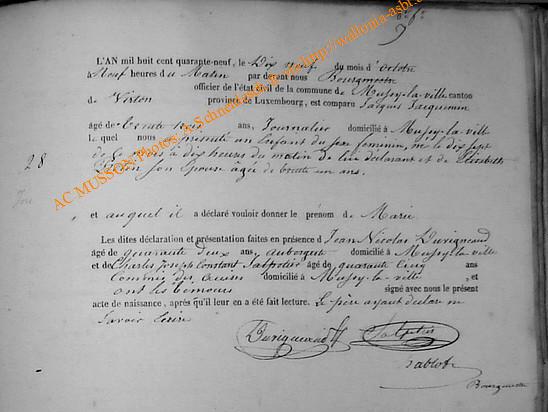 L'AN mil huit cent quarante-neuf, le dix neuf du mois d'Octobre
Neuf heures du Matin par devant nous Bourgmestre
officier de l'état civil de la commune de Mussy-la-ville canton
de Virton province de Luxembourg, est comparu Jacques Jacquemin
âgé de trente trois ans, Journalier domicilié à Mussy-la-ville
lequel nous a présenté un Enfant du sexe féminin, né le dix sept
de ce mois à dix heures du matin de lui déclarant et de
son Epouse agée de trente un ans.
28
et auquel il a déclaré vouloir donner le prénom de Marie
Les dites déclaration et présentation faites en présence d Jean Nicolas Duvigneaud
âgé de quarante deux ans, aubergiste domicilié à Mussy-la-ville
et de Charles Joseph Constant âgé de quarante cinq ans
Commis des domicilié à Mussy-la-ville et
ont les témoins signé avec nous le présent
acte de naissance, après qu'il leur en a été fait lecture. Le père ayant déclaré ne
savoir écrire
Duvigneaud
Bourgmestre
AC MUSSON Photos: A-Schne http://wallonia-asbl.